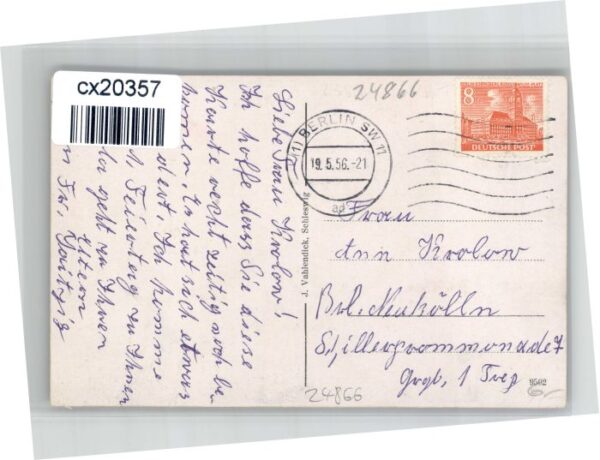 cx20357
24866
8
DEUTSCHE POST
(1) BERLIN SW 11
19.5.56.-21
ap
Liebe Frau Krolow!
Ich hoffe dass Sie diese
Karte recht zeitig noch be-
kommen. Es hat sich etwas
Ich komme
Feiertag zu Ihnen
geht zu Ihnen
Eltern
Frau
Ann Krolow
Bln. Neukölln
Schillerpromenade 7
1 Trep
J. Vahlendick, Schleswig
24866
9502